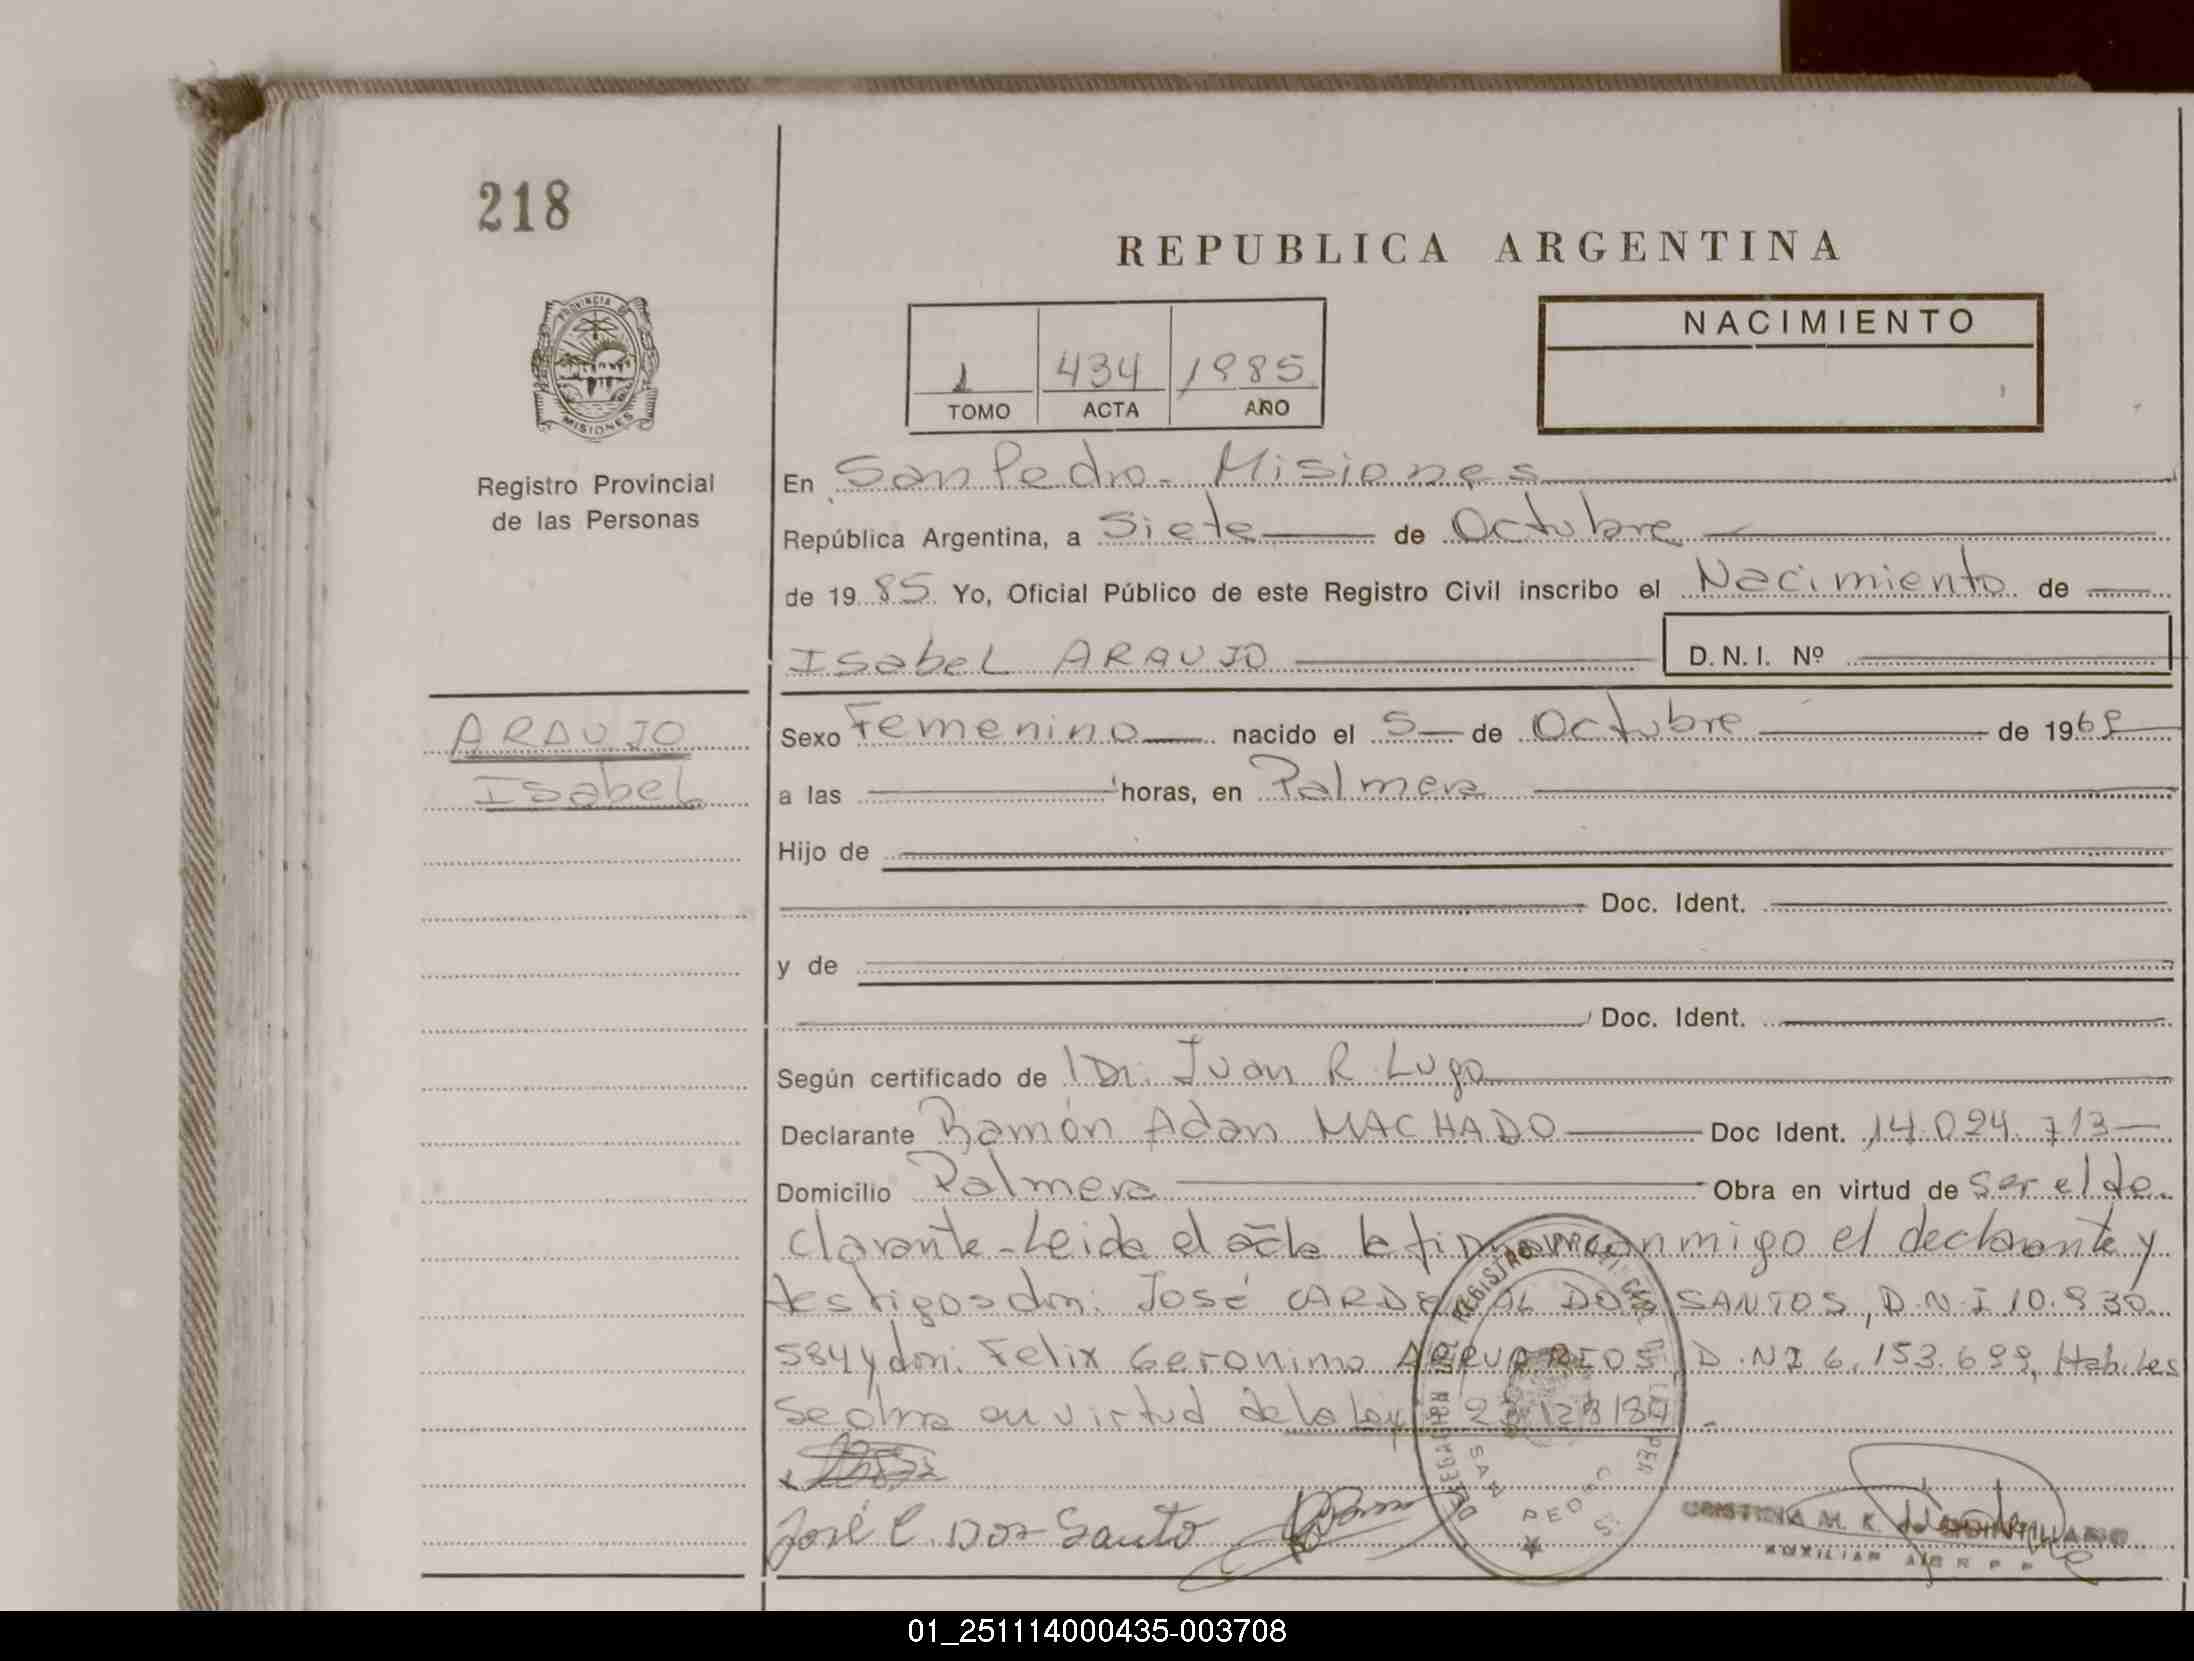 218
REPUBLICA ARGENTINA
PROVINCIA DE
MISIONES
Registro Provincial
de las Personas
NACIMIENTO
1 434 1985
TOMO ACTA AÑO
En San Pedro - Misiones
República Argentina, a Siete de Octubre
de 1985 Yo, Oficial Público de este Registro Civil inscribo el Nacimiento de
Isabel ARAUJO D.N.I. Nº
ARAUJO
Isabel
Sexo Femenino nacido el 5 de Octubre de 1969
a las horas, en Palmera
Hijo de
Doc. Ident.
y de
Doc. Ident.
Según certificado de Dr. Juan R. Lugo
Declarante Ramón Adan MACHADO Doc Ident. 14.024.713
Domicilio Palmera Obra en virtud de ser el de-
clarante - Leida el acta la firman conmigo el declarante y
testigos don: José CARDENAL DOS SANTOS, D.N.I 10.930
584 y don: Felix Geronimo D.N.I 6.153.699, Habiles
Se obra en virtud de la Ley 23.128/84
José C. Dos Santo
SAN PEDRO
CRISTINA M. K. de QUINTILLANO
AUXILIAR
01_251114000435-003708